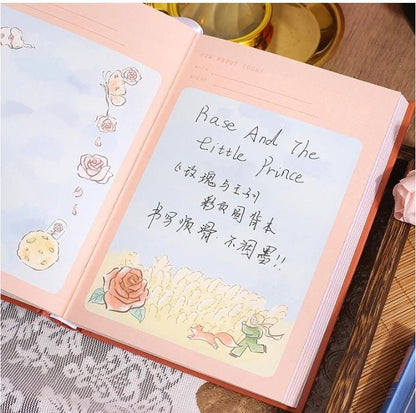 HOW ABOUT TODAY
DATE
Rase And The
Little Prince
《玫瑰与王子》
彩页图背本
书写顺滑·不洇墨!!